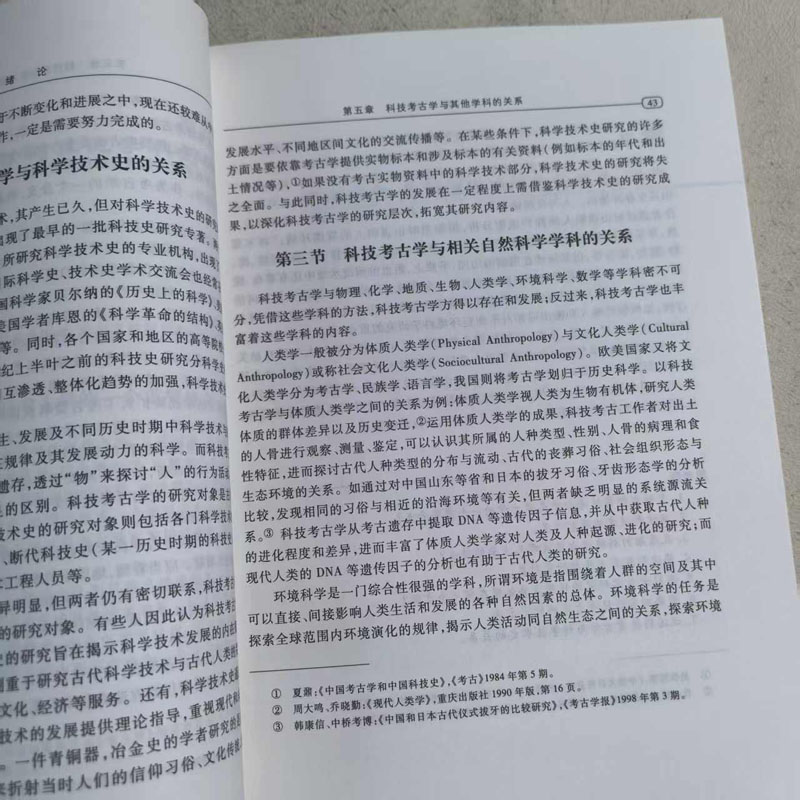 绪 论
于不断变化和进展之中，现在还较难从
作，一定是需要努力完成的。
学与科学技术史的关系
术，其产生已久，但对科学技术史的研究
出现了最早的一批科技史研究专著。
所研究科学技术史的专业机构，出现
国际科学史、技术史学术交流会也经常
国科学家贝尔纳的《历史上的科学》、
美国学者库恩的《科学革命的结构》
等。同时，各个国家和地区的高等院
纪上半叶之前的科技史研究分科学
互渗透、整体化趋势的加强，科学技术
生、发展及不同历史时期中科学技术
在规律及其发展动力的科学。而科技
遗存，透过“物”来探讨“人”的行为活动
的区别。科技考古学的研究对象是
技术史的研究对象则包括各门科学技
、断代科技史（某一历史时期的科技
工程人员等。
异明显，但两者仍有密切联系，科技考
的研究对象。有些人因此认为科技考
史的研究旨在揭示科学技术发展的内在
侧重于研究古代科学技术与古代人类
文化、经济等服务。还有，科学技术史
技术的发展提供理论指导，重视现代科
。一件青铜器，冶金史的学者研究的
来折射当时人们的信仰习俗、文化传
第五章 科技考古学与其他学科的关系 43
发展水平、不同地区间文化的交流传播等。在某些条件下，科学技术史研究的许多
方面是要依靠考古学提供实物标本和涉及标本的有关资料（例如标本的年代和出
土情况等），①如果没有考古实物资料中的科学技术部分，科学技术史的研究将失
之全面。与此同时，科技考古学的发展在一定程度上需借鉴科学技术史的研究成
果，以深化科技考古学的研究层次，拓宽其研究内容。
第三节 科技考古学与相关自然科学学科的关系
科技考古学与物理、化学、地质、生物、人类学、环境科学、数学等学科密不可
分，凭借这些学科的方法，科技考古学方得以存在和发展；反过来，科技考古学也丰
富着这些学科的内容。
人类学一般被分为体质人类学(Physical Anthropology)与文化人类学(Cultural
Anthropology)或称社会文化人类学(Sociocultural Anthropology)。欧美国家又将文
化人类学分为考古学、民族学、语言学，我国则将考古学划归于历史科学。以科技
考古学与体质人类学之间的关系为例：体质人类学视人类为生物有机体，研究人类
体质的群体差异以及历史变迁，②运用体质人类学的成果，科技考古工作者对出土
的人骨进行观察、测量、鉴定，可以认识其所属的人种类型、性别、人骨的病理和食
性特征，进而探讨古代人种类型的分布与流动、古代的丧葬习俗、社会组织形态与
生态环境的关系。如通过对中国山东等省和日本的拔牙习俗、牙齿形态学的分析
比较，发现相同的习俗与相近的沿海环境等有关，但两者缺乏明显的系统源流关
系。③ 科技考古学从考古遗存中提取 DNA 等遗传因子信息，并从中获取古代人种
的进化程度和差异，进而丰富了体质人类学家对人类及人种起源、进化的研究；而
现代人类的 DNA 等遗传因子的分析也有助于古代人类的研究。
环境科学是一门综合性很强的学科，所谓环境是指围绕着人群的空间及其中
可以直接、间接影响人类生活和发展的各种自然因素的总体。环境科学的任务是
探索全球范围内环境演化的规律，揭示人类活动同自然生态之间的关系，探索环境
① 夏鼐：《中国考古学和中国科技史》，《考古》1984 年第 5 期。
② 周大鸣、乔晓勤：《现代人类学》，重庆出版社 1990 年版，第 16 页。
③ 韩康信、中桥考博：《中国和日本古代仪式拔牙的比较研究》，《考古学报》1998 年第 3 期。